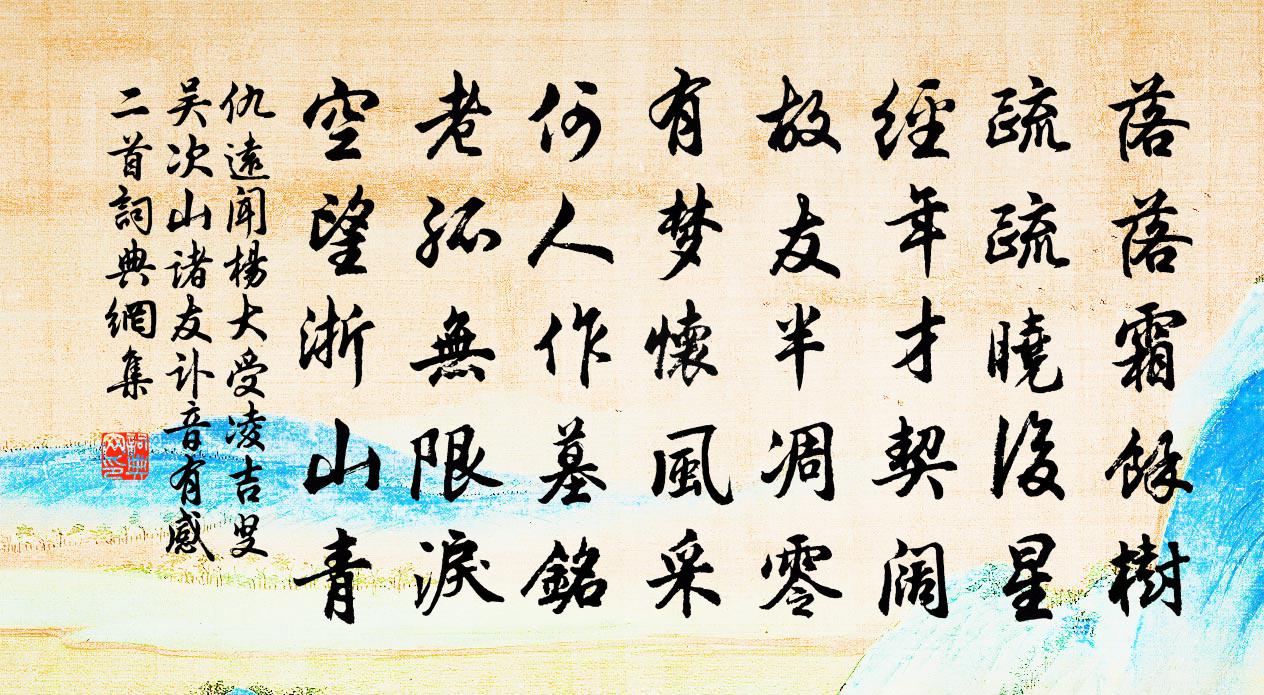 落落霜餘樹
疏疏曉後星
經年才契阔
故友半凋零
有梦懷風采
何人作墓銘
老孤無限淚
空望浙山青
仇遠聞楊大受凌吉叟
吴次山諸友訃音有感
二首詞典網集